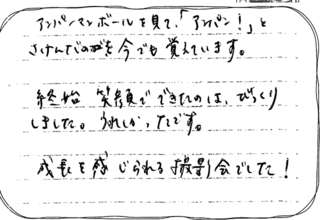 アンパンマンボールを見て、「アンパン!」と
さけんだのを今でも覚えています。
終始 笑顔でできたのは、びっくり
しました。うれしかったです。
成長を感じられる撮影会でした!